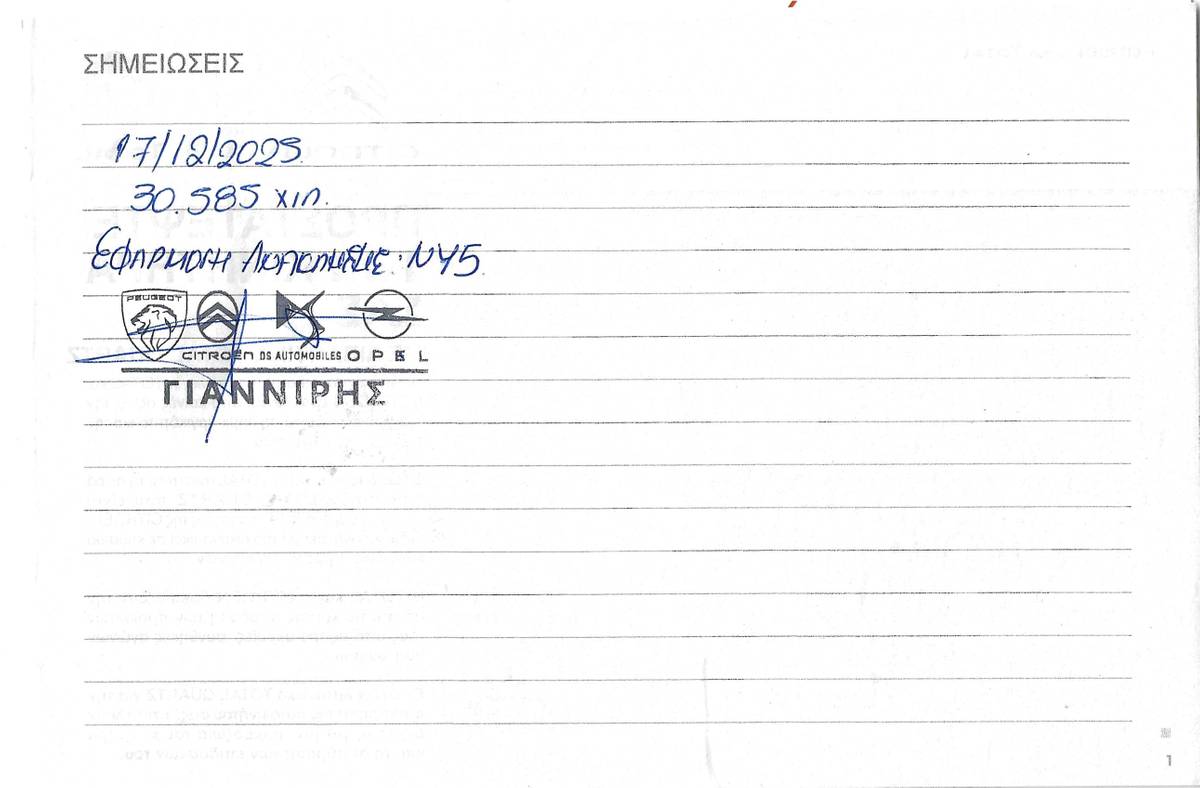 ΣΗΜΕΙΩΣΕΙΣ
17/12/2025
30.585 χιλ.
ΕΦΑΡΜΟΓΗ NY5
PEUGEOT
CITROËN DS AUTOMOBILES OPEL
ΓΙΑΝΝΙΡΗΣ
1